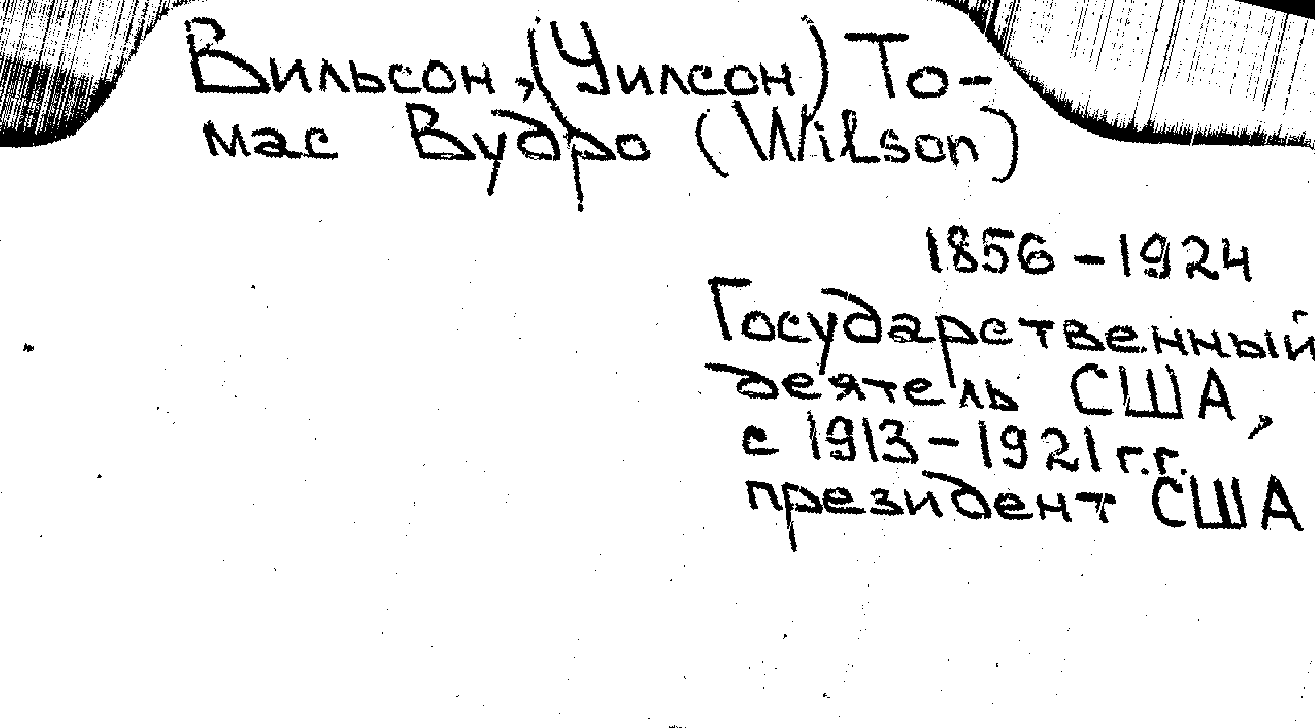 Вильсон, (Уилсон) То-
мас Вудро (Wilson)
1856 - 1924
Государственный
деятель США,
с 1913 - 1921 г.г.
президент США